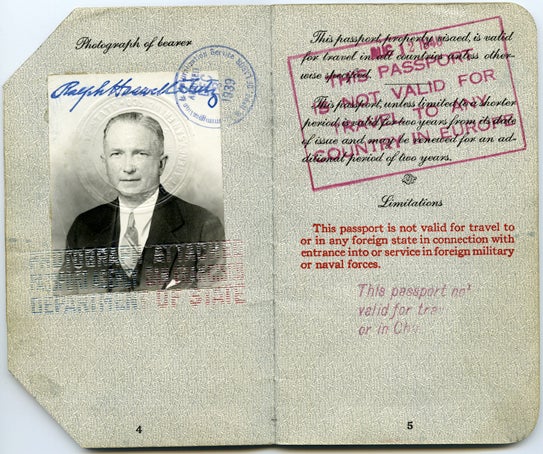 Photograph of bearer
Immigration Service
1939
Ralph Haswell
DEPARTMENT OF STATE
4
This passport, properly visaed, is valid
for travel in all countries unless other-
wise specified.
AUG 12 1940
THIS PASSPORT
IS NOT VALID FOR
TRAVEL TO ANY
COUNTRY IN EUROPE
This passport, unless limited to a shorter
period, is valid for two years from its date
of issue and may be renewed for an ad-
ditional period of two years.
Limitations
This passport is not valid for travel to
or in any foreign state in connection with
entrance into or service in foreign military
or naval forces.
This passport not
valid for
or in
5